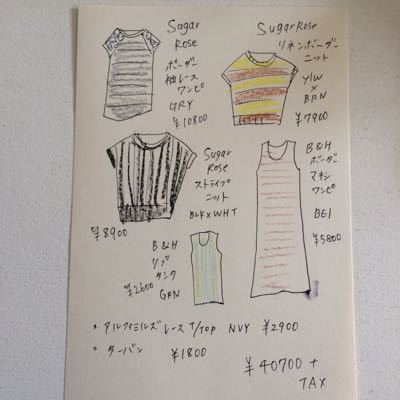 Sugar
Rose
ボーダー
袖レース
ワンピ
GRY
¥10800
SugarRose
リネンボーダー
ニット
YLW
×
BRN
¥7900
Sugar
Rose
ストライプ
ニット
BLK×WHT
¥8900
B&H
ボーダー
マキシ
ワンピ
BEI
¥5800
B&H
リブ
タンク
¥2600
GRN
レース T/TOP NVY ¥2900
ターバン ¥1800
¥40700+
TAX